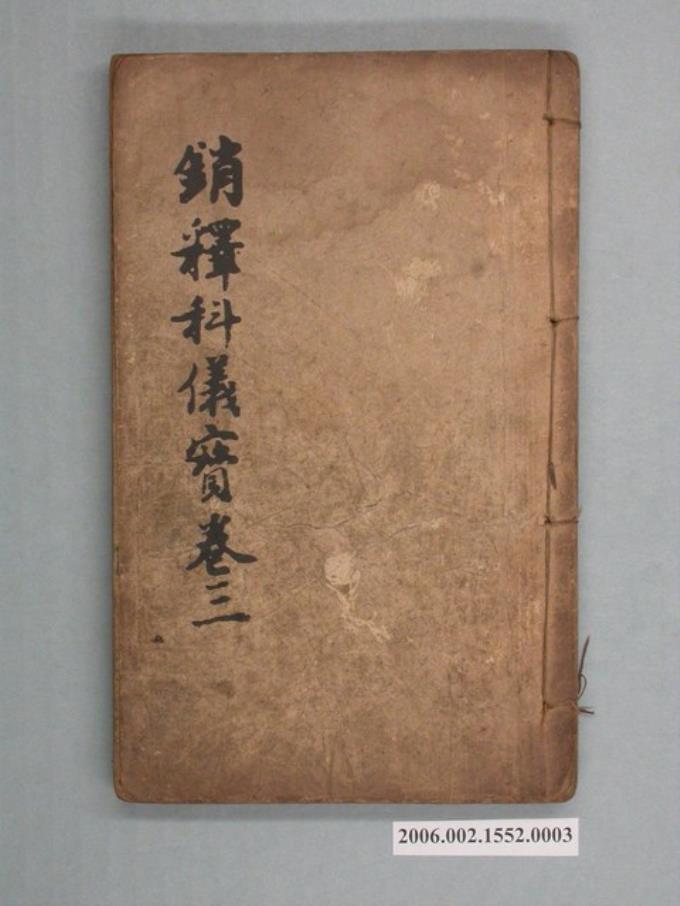 銷釋科儀寶卷三
2006.002.1552.0003